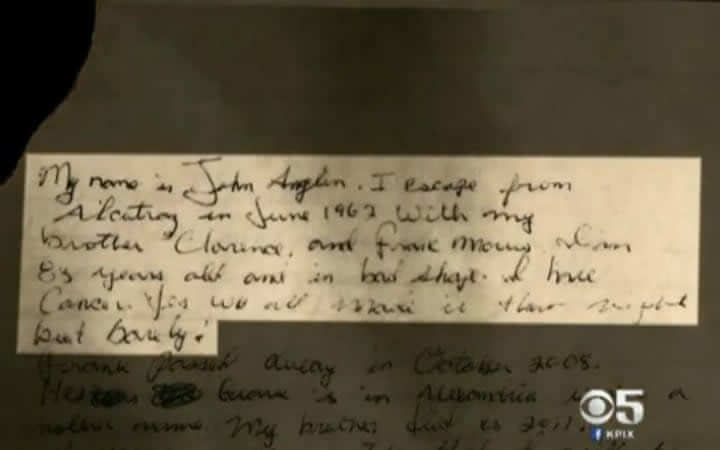 My name is John Anglin. I escape from
Alcatraz in June 1962 With my
brother Clarence, and Frank Morris. I'm
83 years old and in bad shape. I have
Cancer. Yes we all made it that night
but barely!
Frank passed away in October 2008.
His grave is in Alexandria under a
My brother died in 2011.
CBS 5
f KPIX